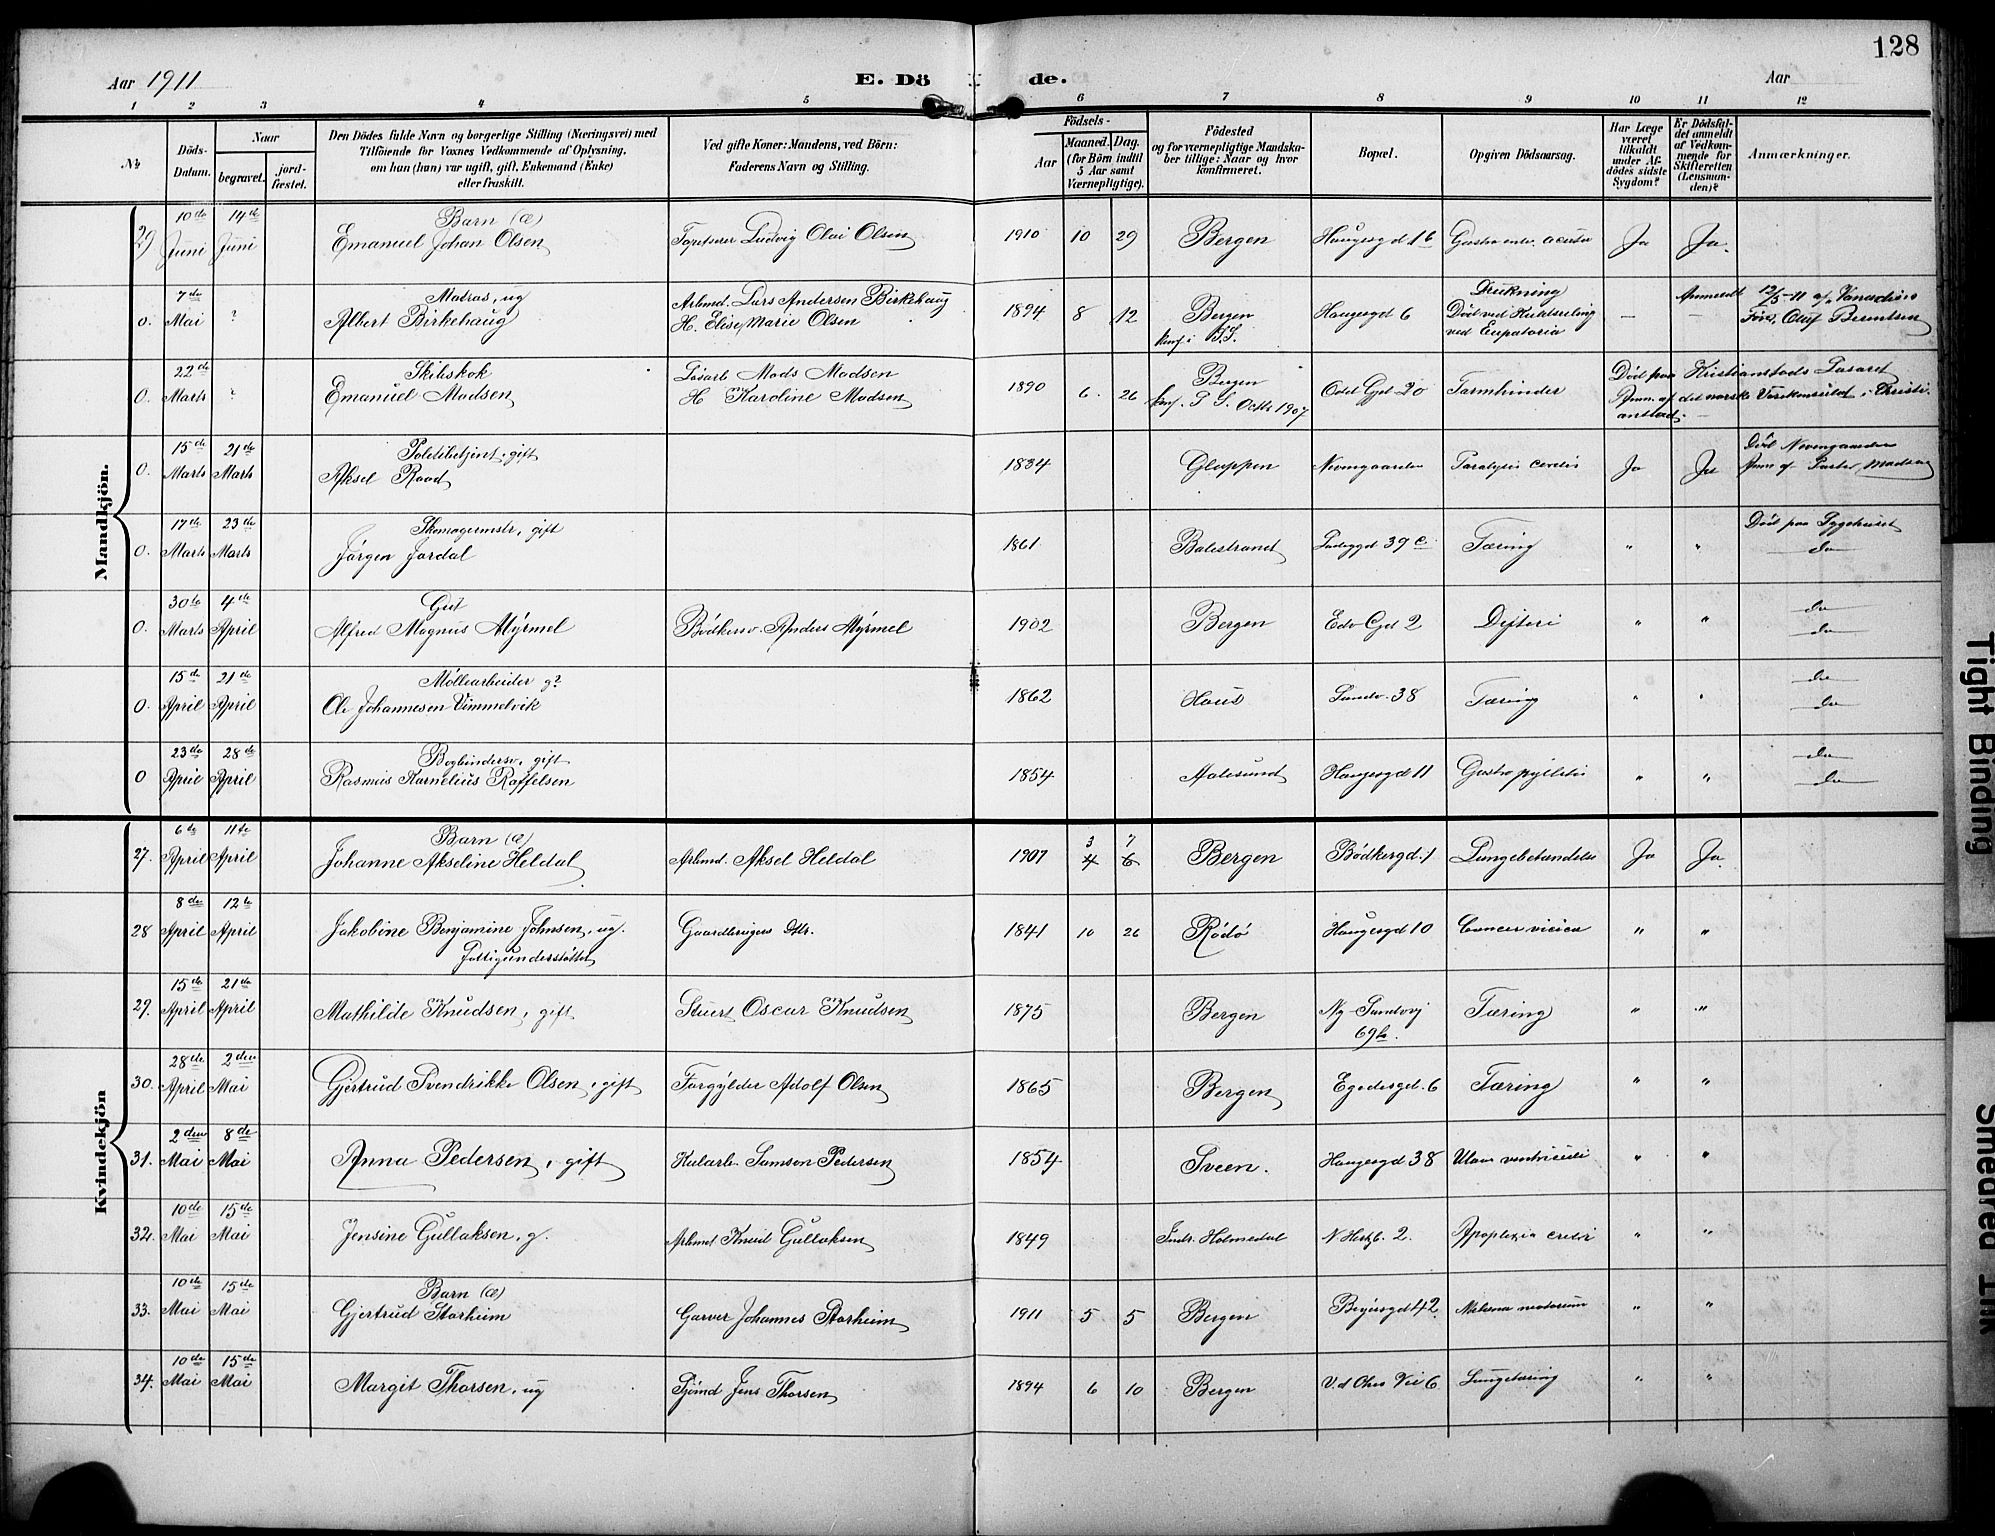 128
Aar 1911 E. Dö de. Aar
1 2 3 4 5 6 7 8 9 10 11 12
№
Döds-Datum.
Naar
begravet. jord-fæstet.
Den Dödes fulde Navn og borgerlige Stilling (Næringsvei) med
Tilföiende for Voxnes Vedkommende af Oplysning,
om han (hun) var ugift, gift, Enkemand (Enke)
eller fraskilt.
Ved gifte Koner: Mandens, ved Börn:
Faderens Navn og Stilling.
Födsels-
Aar Maaned. Dag.
(for Börn indtil
5 Aar samt
Værnepligtige).
Födested
og for værnepligtige Mandska-
ber tillige: Naar og hvor
konfirmeret.
Bopæl.
Opgiven Dödsaarsag.
Har Læge
været
tilkaldt
under Af-
dödes sidste
Sygdom?
Er Dödsfal-
det anmeldt
af Vedkom-
mende for
Skifteretten
(Lensman-
den)?
Anmærkninger.
Mandkjön.
10de 14de Barn (æ)
29 Juni Juni Emanuel Johan Olsen Ludvig Olai Olsen 1910 10 29 Bergen Haugesgd 16 Ja Ja.
7de Matros, ug Arbmd. Lars Andersen Birkehaug Drukning Anmeldt 12/5-11 af
0. Mai ? Albert Birkehaug H. Elise Marie Olsen 1894 8 12 Bergen Haugesgd 6 Död ved — — Olaf Berentsen
konf i S.S. ved Eupatoria
22de Skibskok Lösarb Mads Madsen Bergen Död paa Kristianstads Lasaret
0. Marts ? Emanuel Madsen H Karoline Madsen 1890 6. 26 konf. Octb. 1907 Odd Gd 20 Anm. af det norske Vicekonsulat i Christi-
anstad. —
15de 21de gift Död Neevengaarden
0. Marts Marts Aksel Raad 1834 Gloppen Ja Ja Anm af Pastor Madsen
17de 23de Skomagermstr, gift Död paa Sygehuset
0. Marts Marts Jörgen Jordal 1861 Balestrand 39 c Tæring " " do
30te 4de Gut do
0. Marts April Alfred Magnus Myrmel Bödkersv. Anders Myrmel 1902 Bergen Edv Gd 2 Difteri " " do
15de 21de Möllearbeider g? do
0. April April Ole Johannesen Vimmelvik 1862 Haus Sandv. 38 Tæring " " do
23de 28de Bogbindersv, gift do
0 April April Rasmus Karnelius Raffelsen 1854 Aalesund Haugesgd 11 " " do
Kvindekjön
6te 11te Barn (æ) 3 7
27. April April Johanne Akseline Heldal Arbmd. Aksel Heldal 1907 4 6 Bergen Bödkergd. 1 Lungebetændelse Ja Ja
8de 12te
28 April April Jakobine Benjamine Johnsen, ug. Gaardbrugers Dtr. 1841 10 26 Rödö Haugesgd 10 Cancer " "
Fattigunderstöttet
15de 21de
29. April April Mathilde Knudsen, gift Stuert Oscar Knudsen 1875 Bergen Ny-Sandvj Tæring " "
69b.
28de 2den
30. April Mai Gjertrud Svendrikke Olsen, gift Forgylder Adolf Olsen 1865 Bergen Egedesgd. 6 Tæring " "
2den 8de
31. Mai Mai Anna Pedersen, gift Kularb. Samson Pedersen 1854 Sveen. Haugesgd 38 Ulcus ventriculi " "
10de 15de
32. Mai Mai Jensine Gullaksen, g. Arbmd. Knud Gullaksen 1849 Indr. Holmedal 2. Apoplexia " "
10de 15de Barn (æ)
33. Mai Mai Gjertrud Storheim Garver Johannes Storheim 1911 5 5 Bergen 42 " "
10de 15de
34. Mai Mai Margit Thorsen, ug Sjömd Jens Thorsen 1894 6 10 Bergen Vei 6 Lungetæring " "
Tight Binding
Smeared Ink